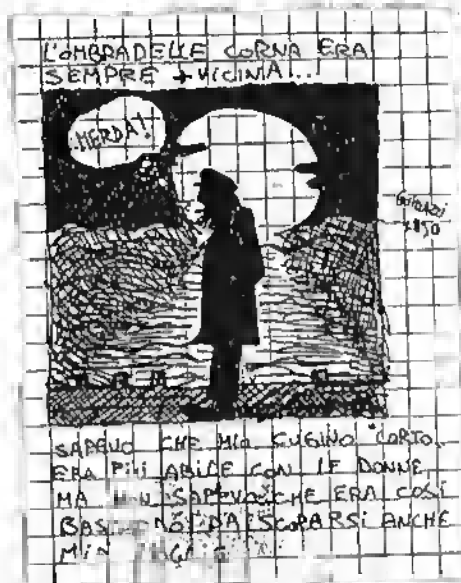 L'OMBRA DELLE CORNA ERA
SEMPRE + VICINA...
MERDA!
X 150
SAPEVO CHE MIO CUGINO "CORTO"
ERA PIÙ ABILE CON LE DONNE
MA NON SAPEVO CHE ERA COSÌ
DA SCOPARSI ANCHE